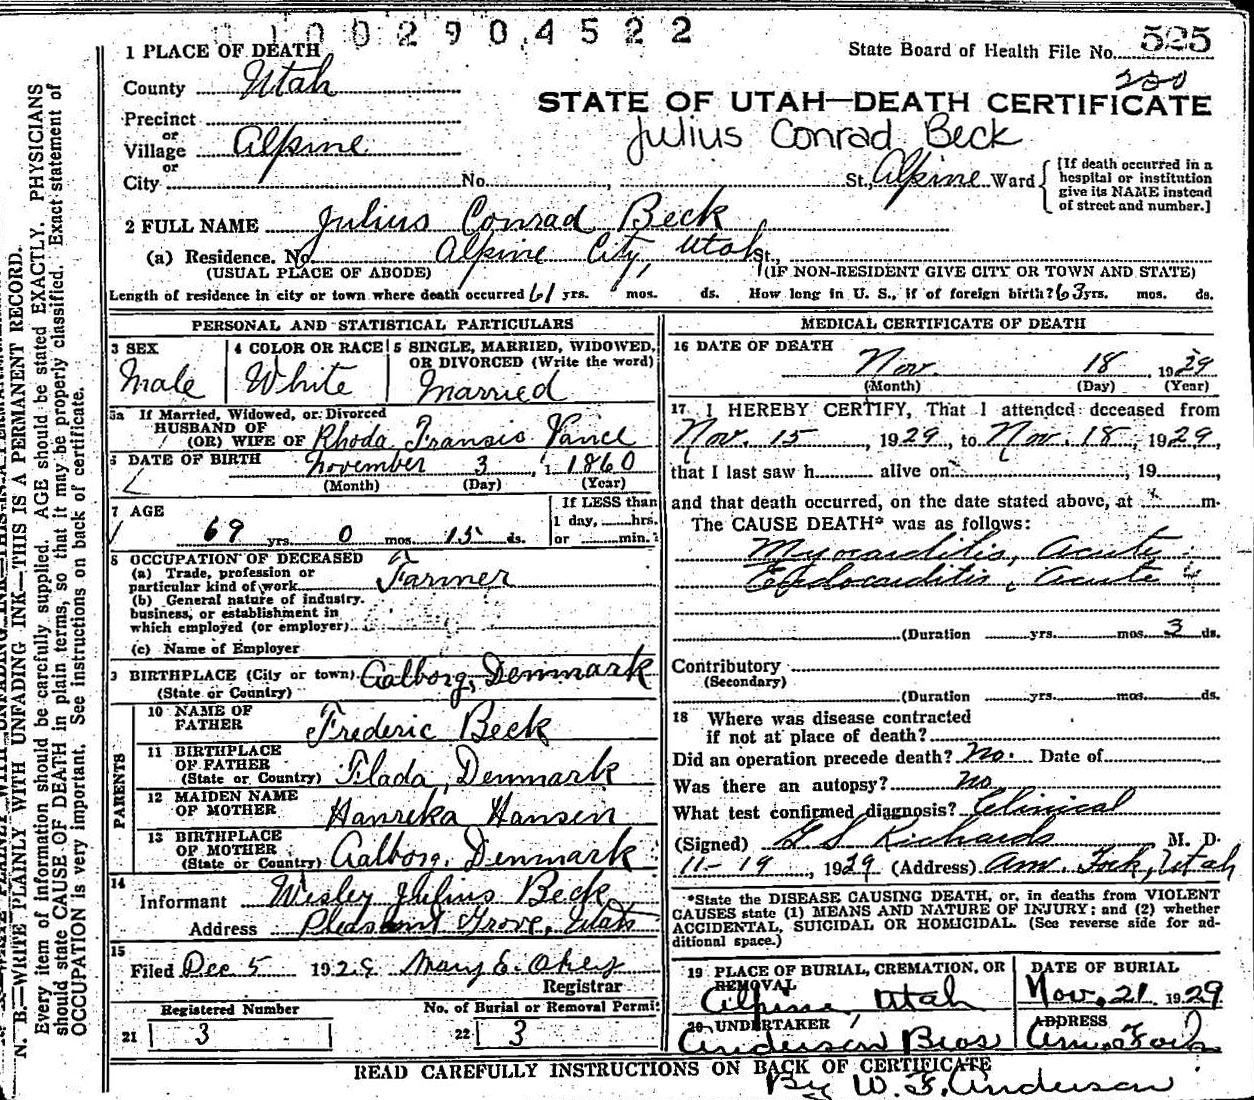 0100290.4522
State Board of Health File No. 525
230
1 PLACE OF DEATH
County Utah
STATE OF UTAH—DEATH CERTIFICATE
Precinct
or
Village Alpine
Julius Conrad Beck
or
City No. , St., Alpine Ward
[If death occurred in a hospital or institution give its NAME instead of street and number.]
2 FULL NAME Julius Conrad Beck
(a) Residence. No. Alpine City, Utah St.,
(USUAL PLACE OF ABODE) (IF NON-RESIDENT GIVE CITY OR TOWN AND STATE)
Length of residence in city or town where death occurred 61 yrs. mos. ds. How long in U. S., if of foreign birth? 63 yrs. mos. ds.
PERSONAL AND STATISTICAL PARTICULARS
3 SEX
Male
4 COLOR OR RACE
White
5 SINGLE, MARRIED, WIDOWED,
OR DIVORCED (Write the word)
Married
5a If Married, Widowed, or Divorced
HUSBAND OF
(OR) WIFE OF Rhoda Fransis Vance
6 DATE OF BIRTH November 3, 1860
(Month) (Day) (Year)
7 AGE
69 yrs. 0 mos. 15 ds.
If LESS than
1 day, hrs.
or min.
8 OCCUPATION OF DECEASED
(a) Trade, profession or
particular kind of work Farmer
(b) General nature of industry.
business, or establishment in
which employed (or employer)
(c) Name of Employer
9 BIRTHPLACE (City or town) Aalborg, Denmark
(State or Country)
PARENTS
10 NAME OF
FATHER Frederic Beck
11 BIRTHPLACE
OF FATHER
(State or Country) Flada, Denmark
12 MAIDEN NAME
OF MOTHER Hanreka Hansen
13 BIRTHPLACE
OF MOTHER
(State or Country) Aalborg, Denmark
14
Informant Wesley Julius Beck
Address Pleasant Grove, Utah
15
Filed Dec 5 1929 Mary E. Okey
Registrar
Registered Number
21 3
No. of Burial or Removal Permit
22 3
MEDICAL CERTIFICATE OF DEATH
16 DATE OF DEATH
Nov. 18, 1929
(Month) (Day) (Year)
17 I HEREBY CERTIFY, That I attended deceased from
Nov. 15, 1929, to Nov. 18, 1929,
that I last saw h alive on , 19
and that death occurred, on the date stated above, at m.
The CAUSE DEATH* was as follows:
Myocarditis, Acute
Endocarditis, Acute
(Duration yrs. mos. 3 ds.
Contributory
(Secondary)
(Duration yrs. mos. ds.
18 Where was disease contracted
if not at place of death?
Did an operation precede death? No. Date of
Was there an autopsy? no
What test confirmed diagnosis? Clinical
(Signed) G S Richards M. D.
11-19, 1929 (Address) Am. Fork, Utah
*State the DISEASE CAUSING DEATH, or, in deaths from VIOLENT
CAUSES state (1) MEANS AND NATURE OF INJURY; and (2) whether
ACCIDENTAL, SUICIDAL OR HOMICIDAL. (See reverse side for ad-
ditional space.)
19 PLACE OF BURIAL, CREMATION, OR
REMOVAL
Alpine, Utah
DATE OF BURIAL
Nov. 21 1929
20 UNDERTAKER
Anderson Bros
ADDRESS
Am. Fork
READ CAREFULLY INSTRUCTIONS ON BACK OF CERTIFICATE
By W. F. Anderson
N. B.—WRITE PLAINLY WITH UNFADING INK—THIS IS A PERMANENT RECORD.
Every item of information should be carefully supplied. AGE should be stated EXACTLY. PHYSICIANS
should state CAUSE OF DEATH in plain terms, so that it may be properly classified. Exact statement of
OCCUPATION is very important. See instructions on back of certificate.